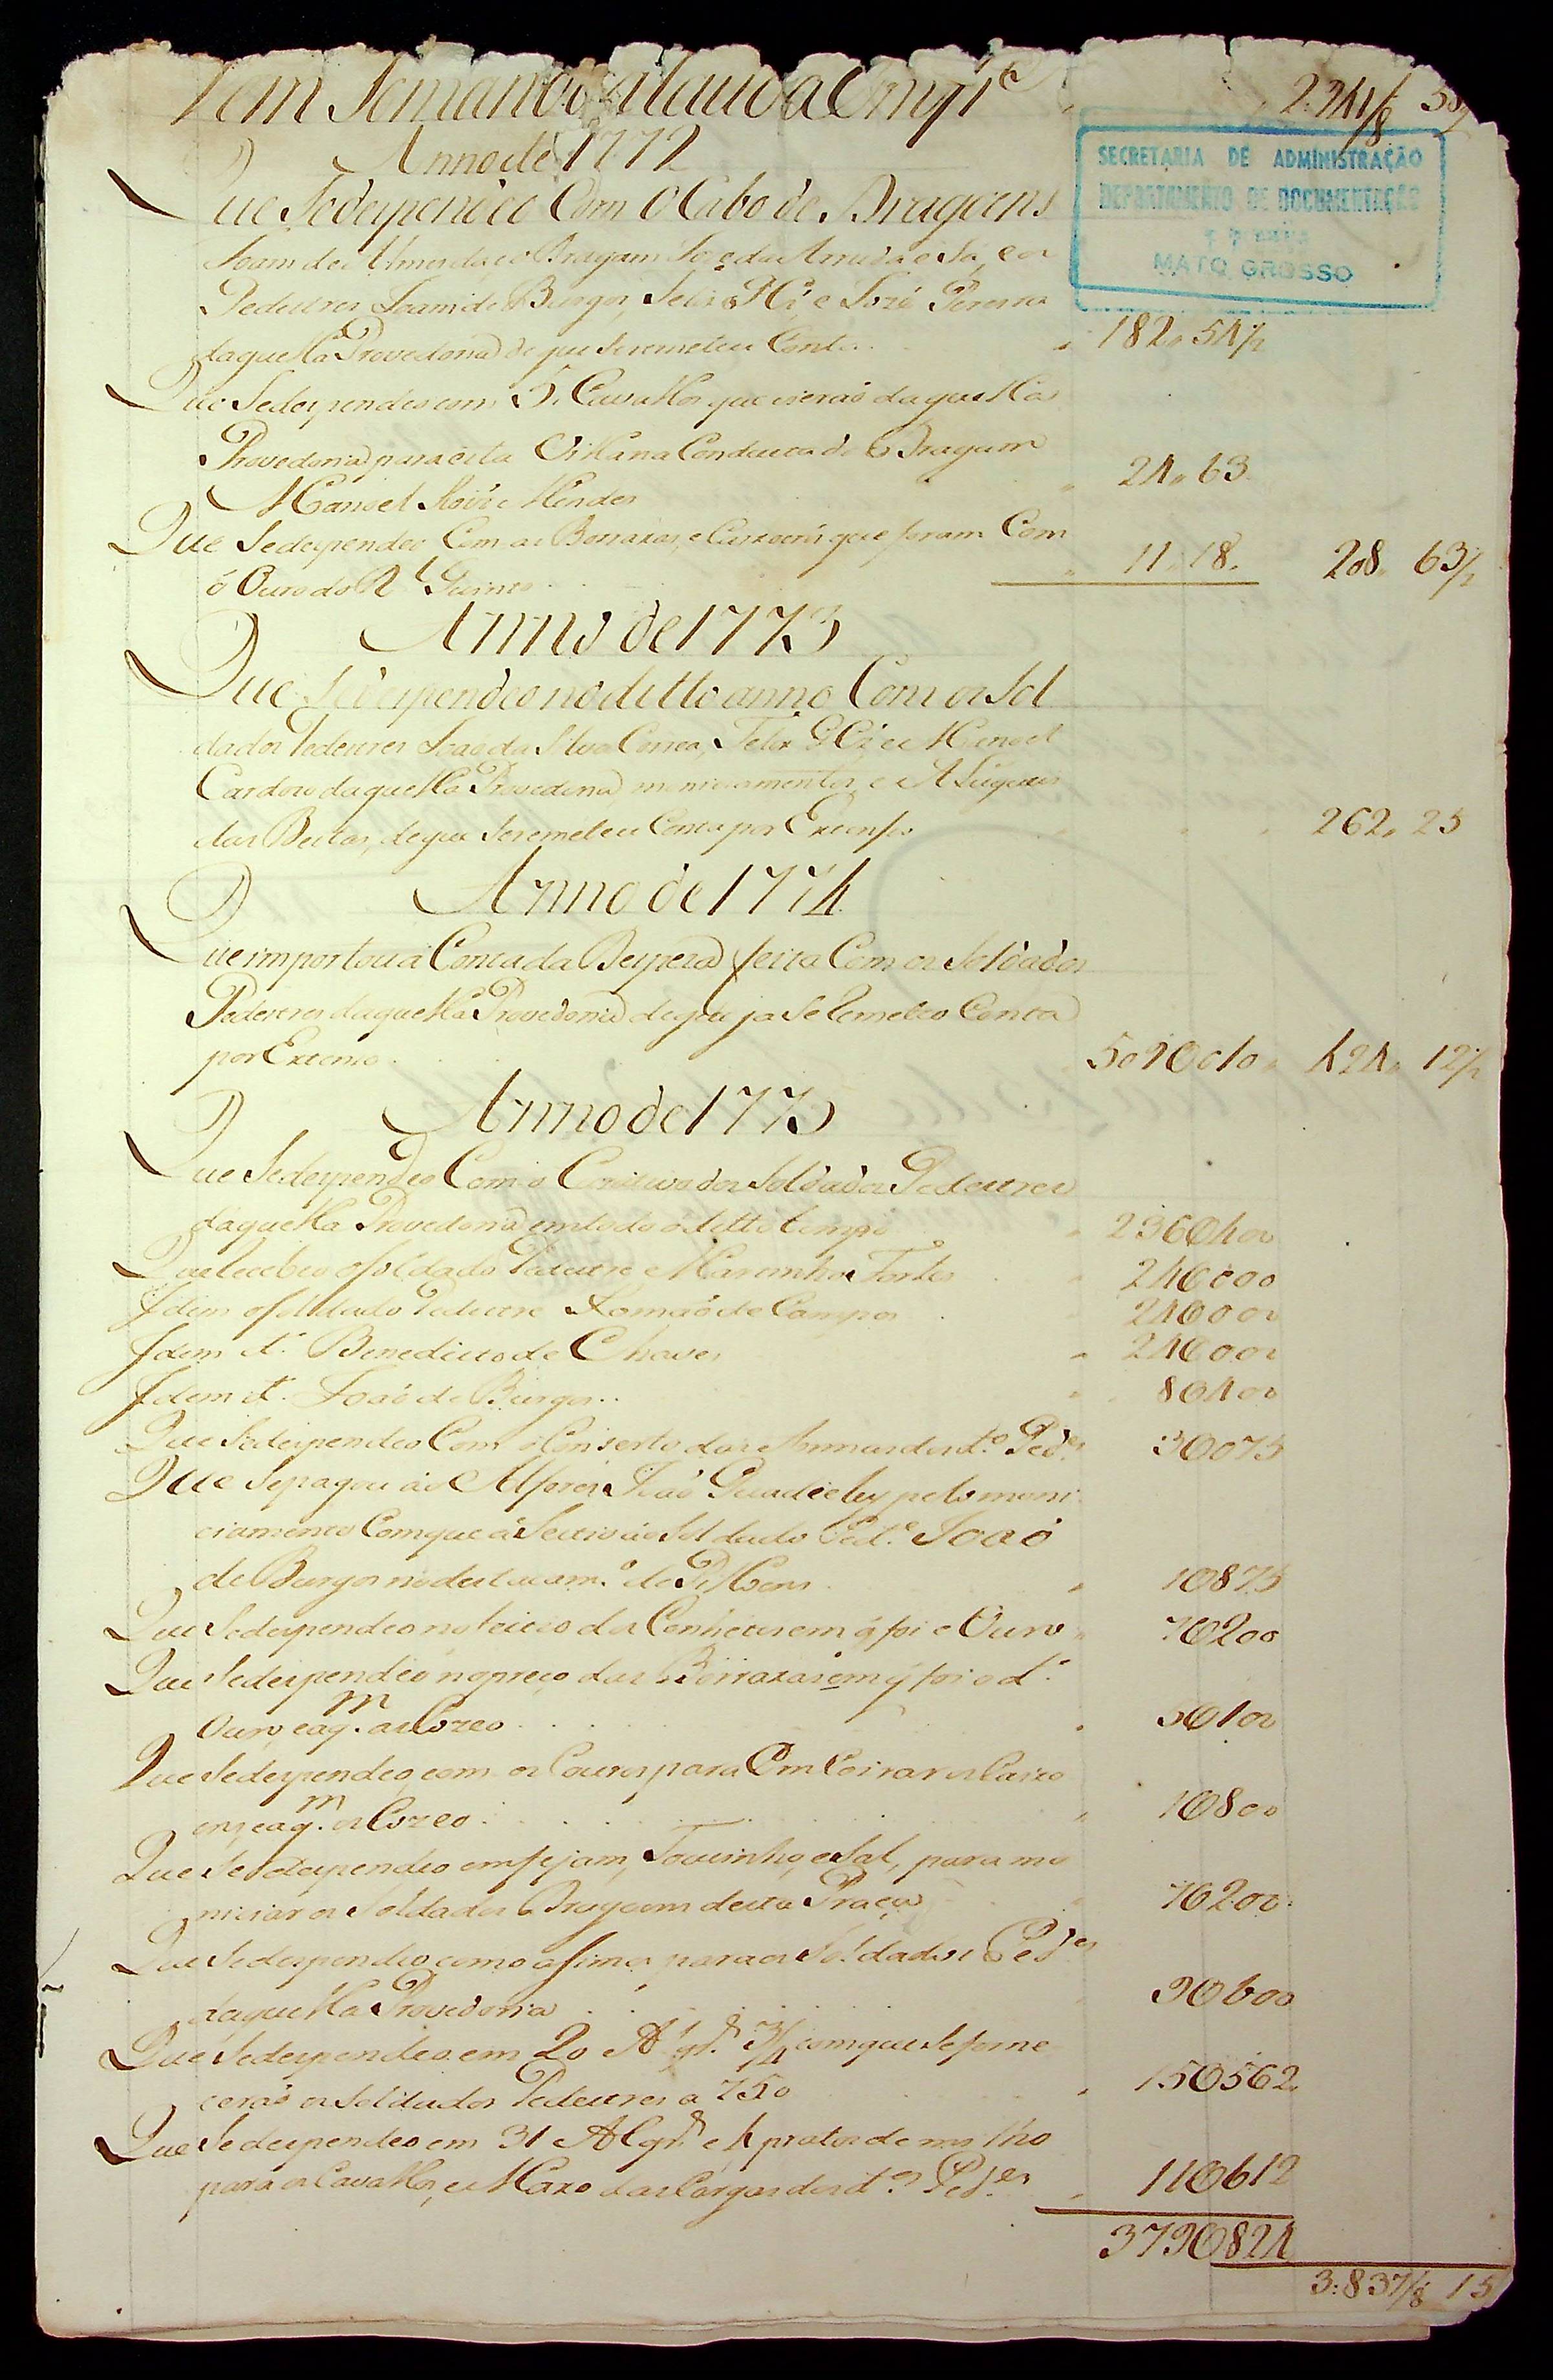 Vem Somando
2:941/8 58/2
SECRETARIA DE ADMINISTRAÇÃO
DEPARTAMENTO DE DOCUMENTAÇÃO
MATO GROSSO
Anno de 1772
Que Se despendeo Com o Cabo de Dragoens
Joam de Almeida e o Dragam Joze de Arruda e Sá, e os
Pedestres Joam de Burgos, Felis e José Pereira
daquella Provedoria de que Se remeteu Conta
182" 54/2
Que Se despendeo com 5 Cavallos que vierão daquella
Provedoria para esta Villa na Conducta do Dragam
Manoel Mendes
24" 63
Que Se despendeo Com as Borraxas, e Caxoens que foram Com
o Ouro do Rl Quinto
11" 18"
208" 63/2
Anno de 1773
Que Se despendeo no ditto anno Com os Sol
dados Pedestres João da Silva Correa, Felix e Manoel
Cardozo daquella Provedoria moniciamentos, e Alugueis
das Bestas, de que Se remeteu Conta por Extenso
262" 25
Anno de 1774
Que importou a Conta da Despeza feita Com os Soldados
Pedestres daquella Provedoria de que ja Se Remeteo Conta
por Extenso
424" 12/2
Anno de 1775
Que Se despendeo Com o Curativo dos Soldados Pedestres
daquella Provedoria em todo o ditto tempo
236$400
Que Recebeo o Soldado Pedestre Martinho Fortes
24$000
Idem o Soldado Pedestre Romão de Campos
24$000
Idem dº Benedicto de Chaves
24$000
Idem dº João de Burgos
8$400
Que Se despendeo Com o Conserto das Armas dos dos Pedes
3$075
Que Se pagou ao Alferes João pelo moni
ciamento Com que aSestio ao Soldado Pede João
de Burgos no destacamto de Pilloens
1$875
Que Se despendeo no feitio dos Cunhetes em q foi o Ouro
7$200
Que Se despendeo no preço das Borraxas em q foi o do
Ouro, e aqm as Cozeo
5$100
Que Se despendeo com os Couros para Emcoirar os Caixo
ens, e aqm os Cozeo
1$800
Que Se despendeo em feijam, Toucinho, e Sal, para mo
niciar os Soldados Dragoens desta Praça
7$200
Que Se despendeo como asima para os Soldados Pedes
daquella Provedoria
9$600
Que Se despendeo em 20 Alqres 3/4 com que Se forne
cerão os Soldados Pedestres a 750
15$562
Que Se despendeo em 31 Alqres e 4 pratos de milho
para os Cavallos, e Maxo das Cargas dos dos Pedes
11$612
379$824
3:837/8 15